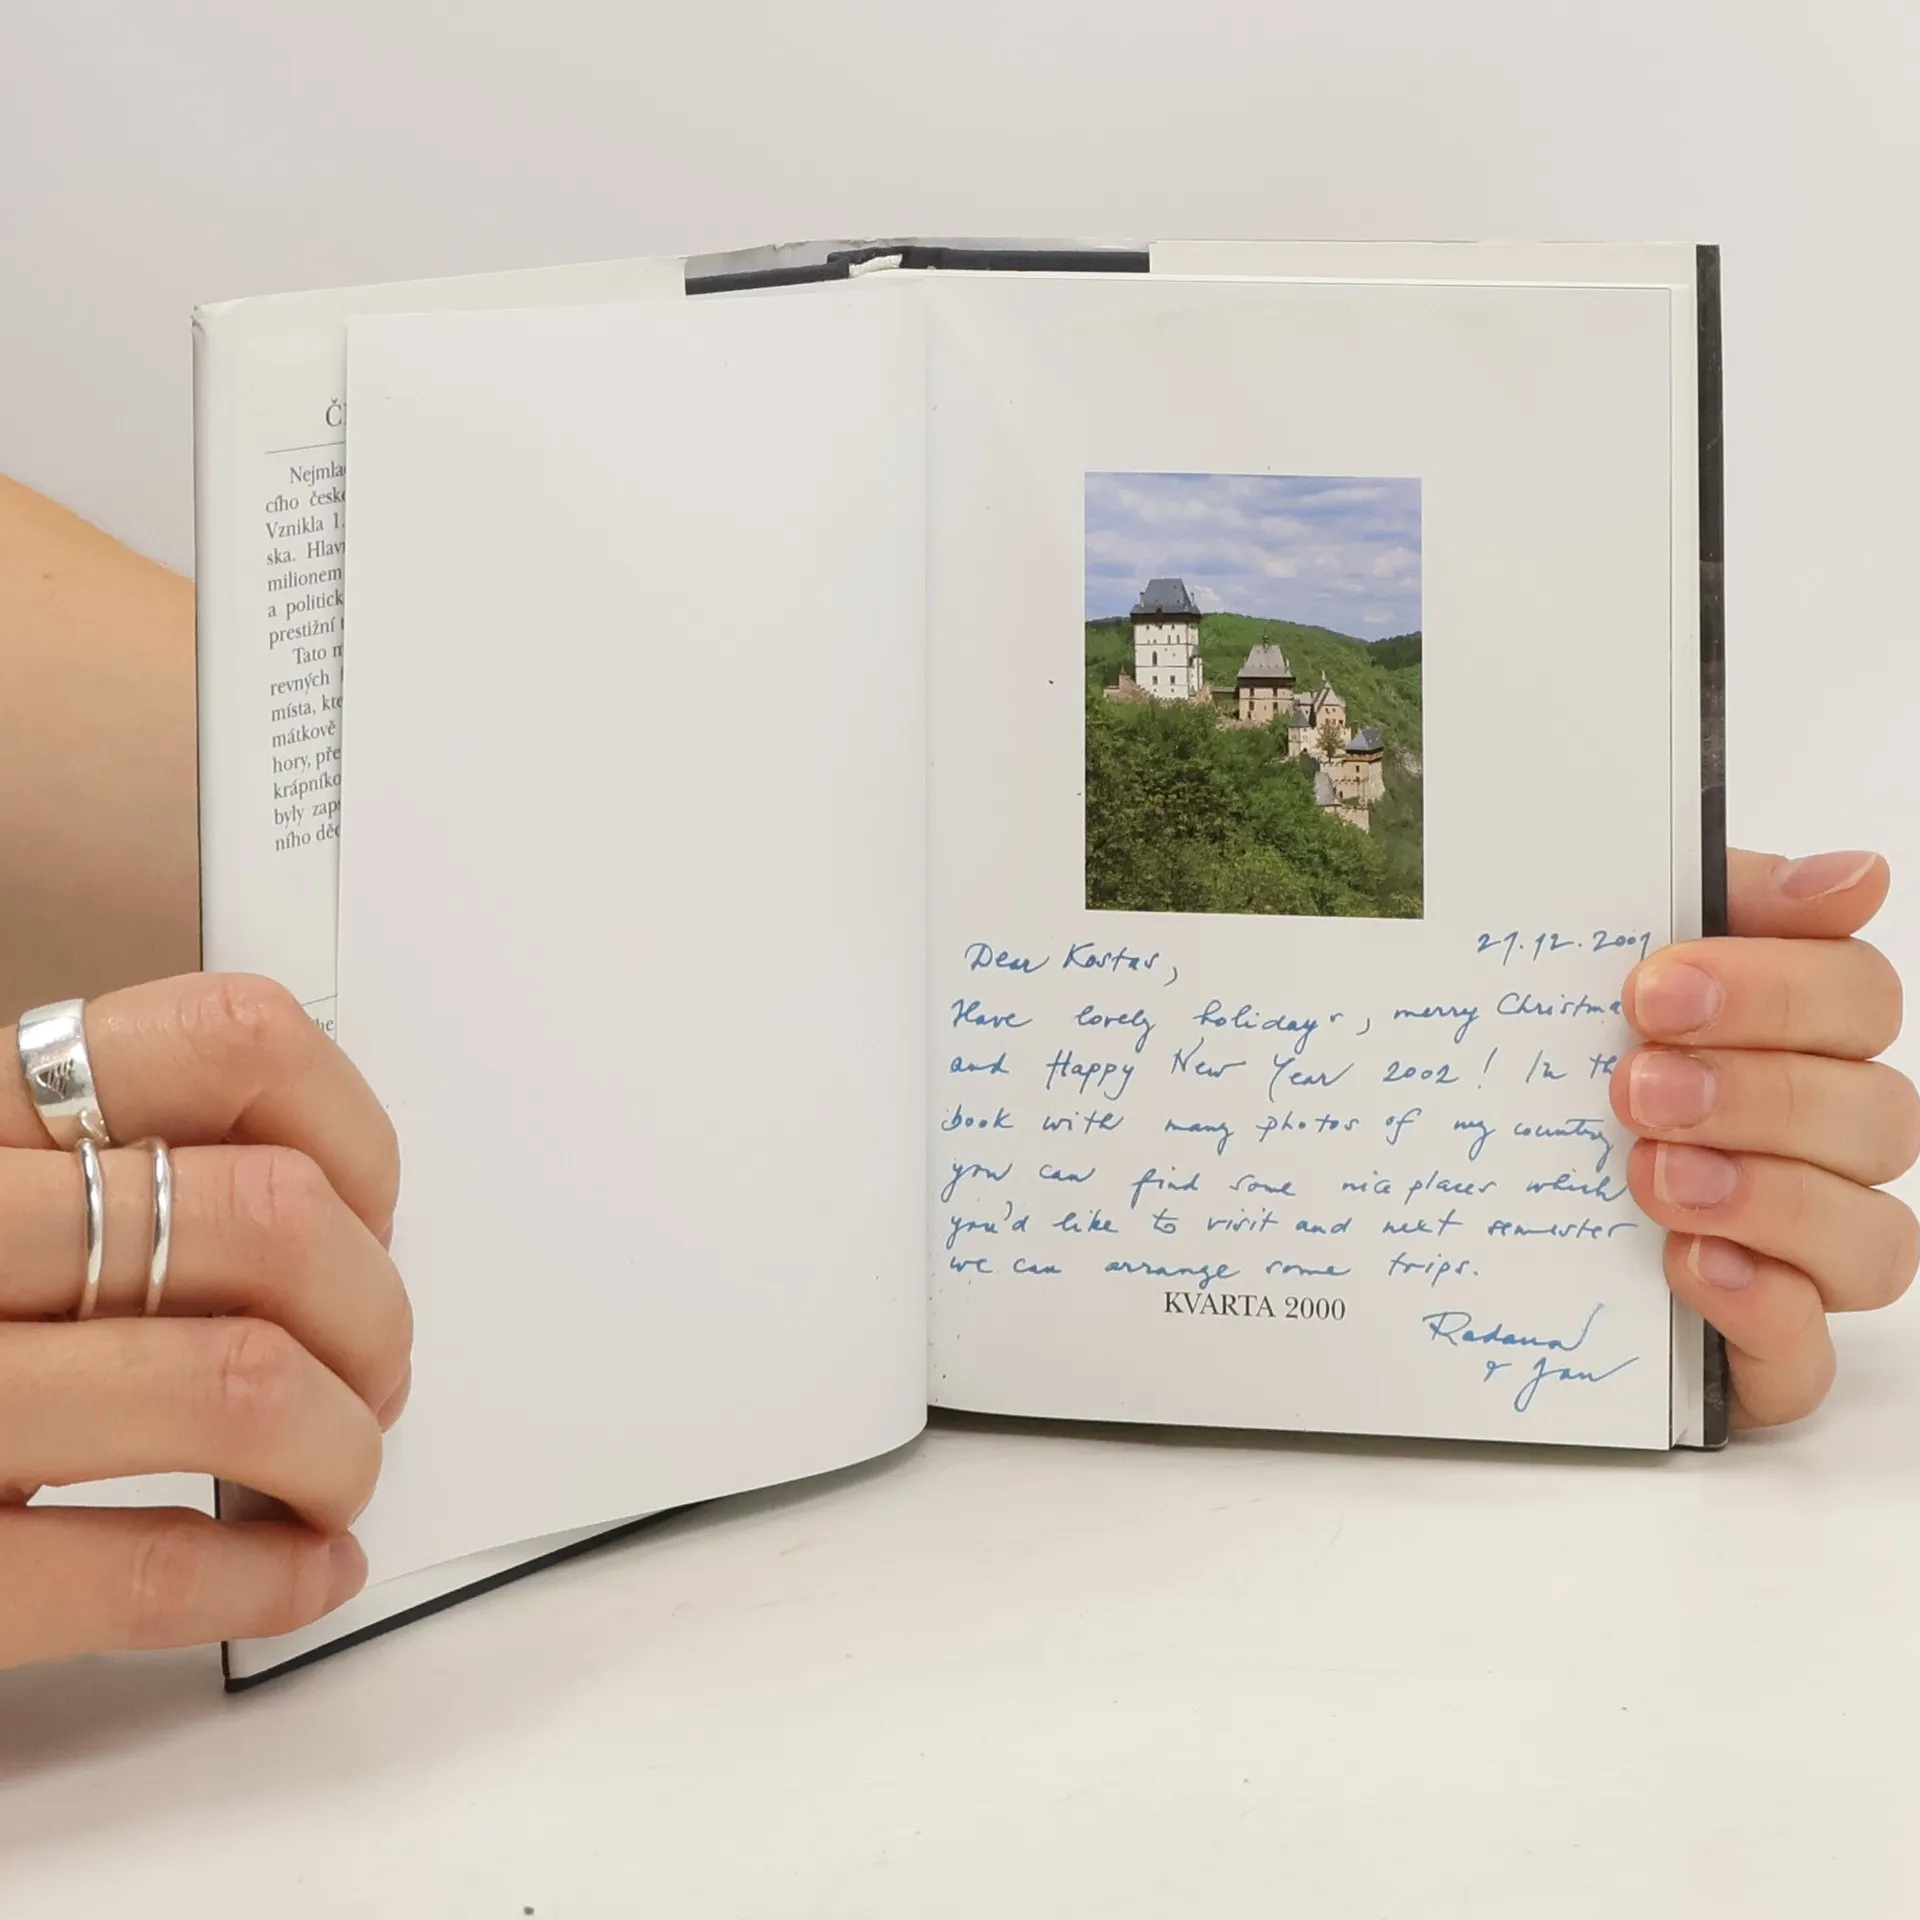 Č
Nejmla
cího česk
Vznikla 1.
ska. Hlav
milionem
a politick
prestižní
Tato m
revných
místa, kte
mátkově
hory, pře
krápníko
byly zaps
ního děd
he
21.12.2001
Dear Kostas,
Have lovely holidays, merry Christma
and Happy New Year 2002! In th
book with many photos of my country
you can find some nice places which
you'd like to visit and next semester
we can arrange some trips.
KVARTA 2000
Radana
& Jan